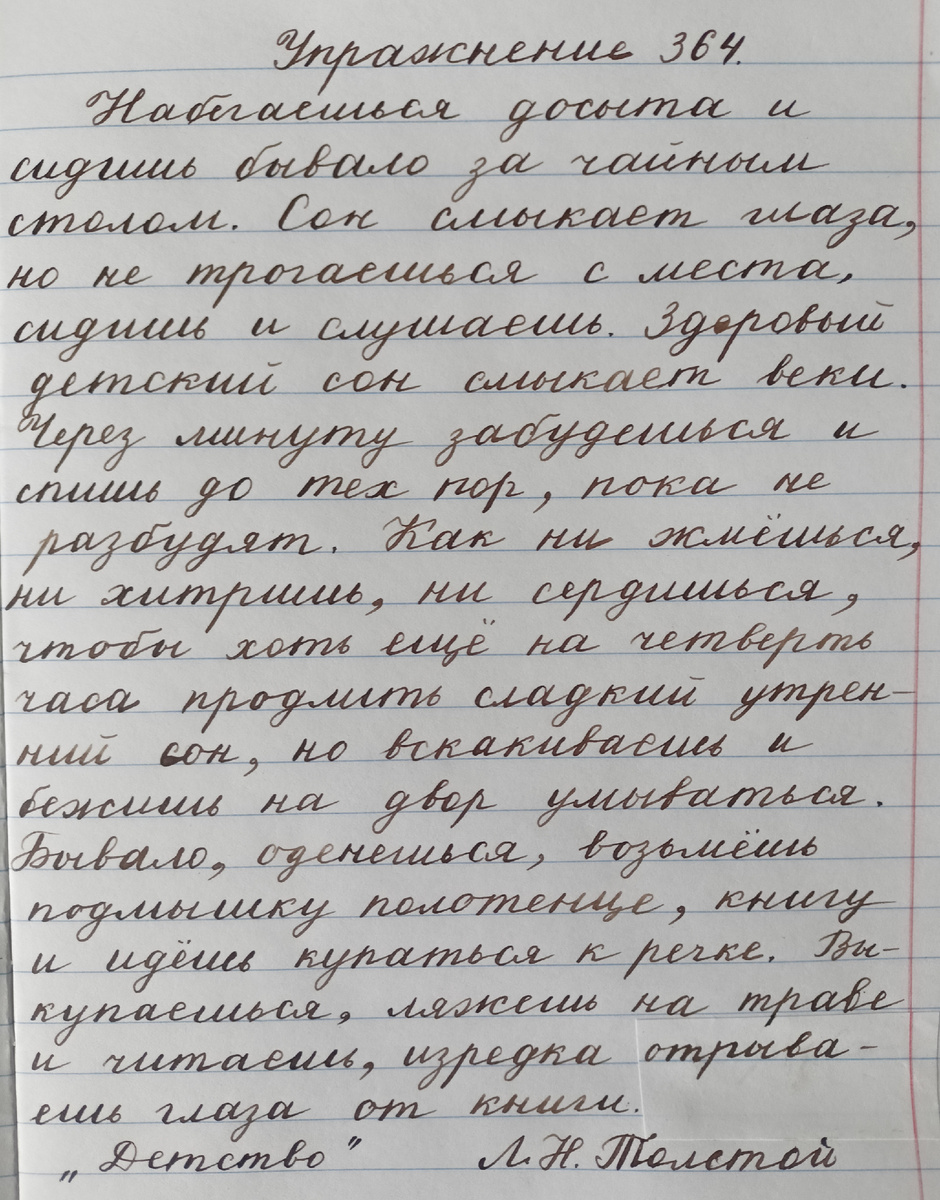 Упражнение 364.
Набегаешься досыта и
сидишь бывало за чайным
столом. Сон смыкает глаза,
но не трогаешься с места,
сидишь и слушаешь. Здоровый
детский сон смыкает веки.
Через минуту забудешься и
спишь до тех пор, пока не
разбудят. Как ни жмёшься,
ни хитришь, ни сердишься,
чтобы хоть ещё на четверть
часа продлить сладкий утрен-
ний сон, но вскакиваешь и
бежишь на двор умываться.
Бывало, оденешься, возьмёшь
подмышку полотенце, книгу
и идёшь купаться к речке. Вы-
купаешься, ляжешь на траве
и читаешь, изредка отрыва-
ешь глаза от книги.
„Детство" Л.Н.Толстой